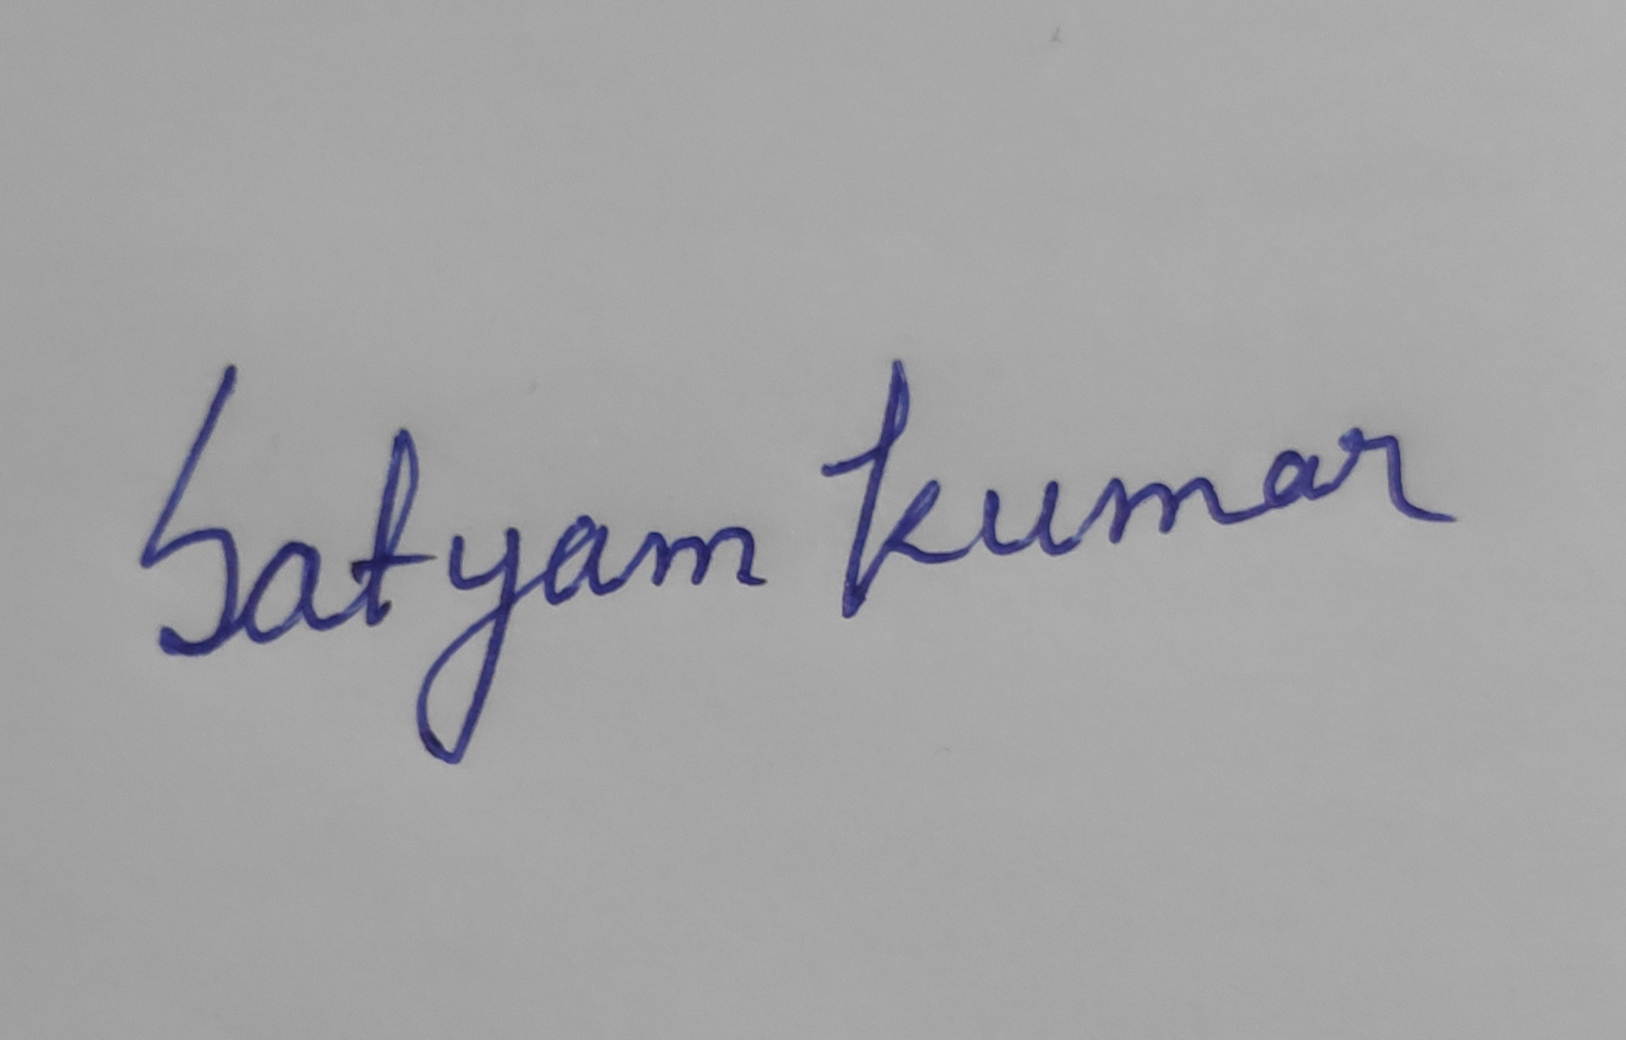 Satyam Kumar